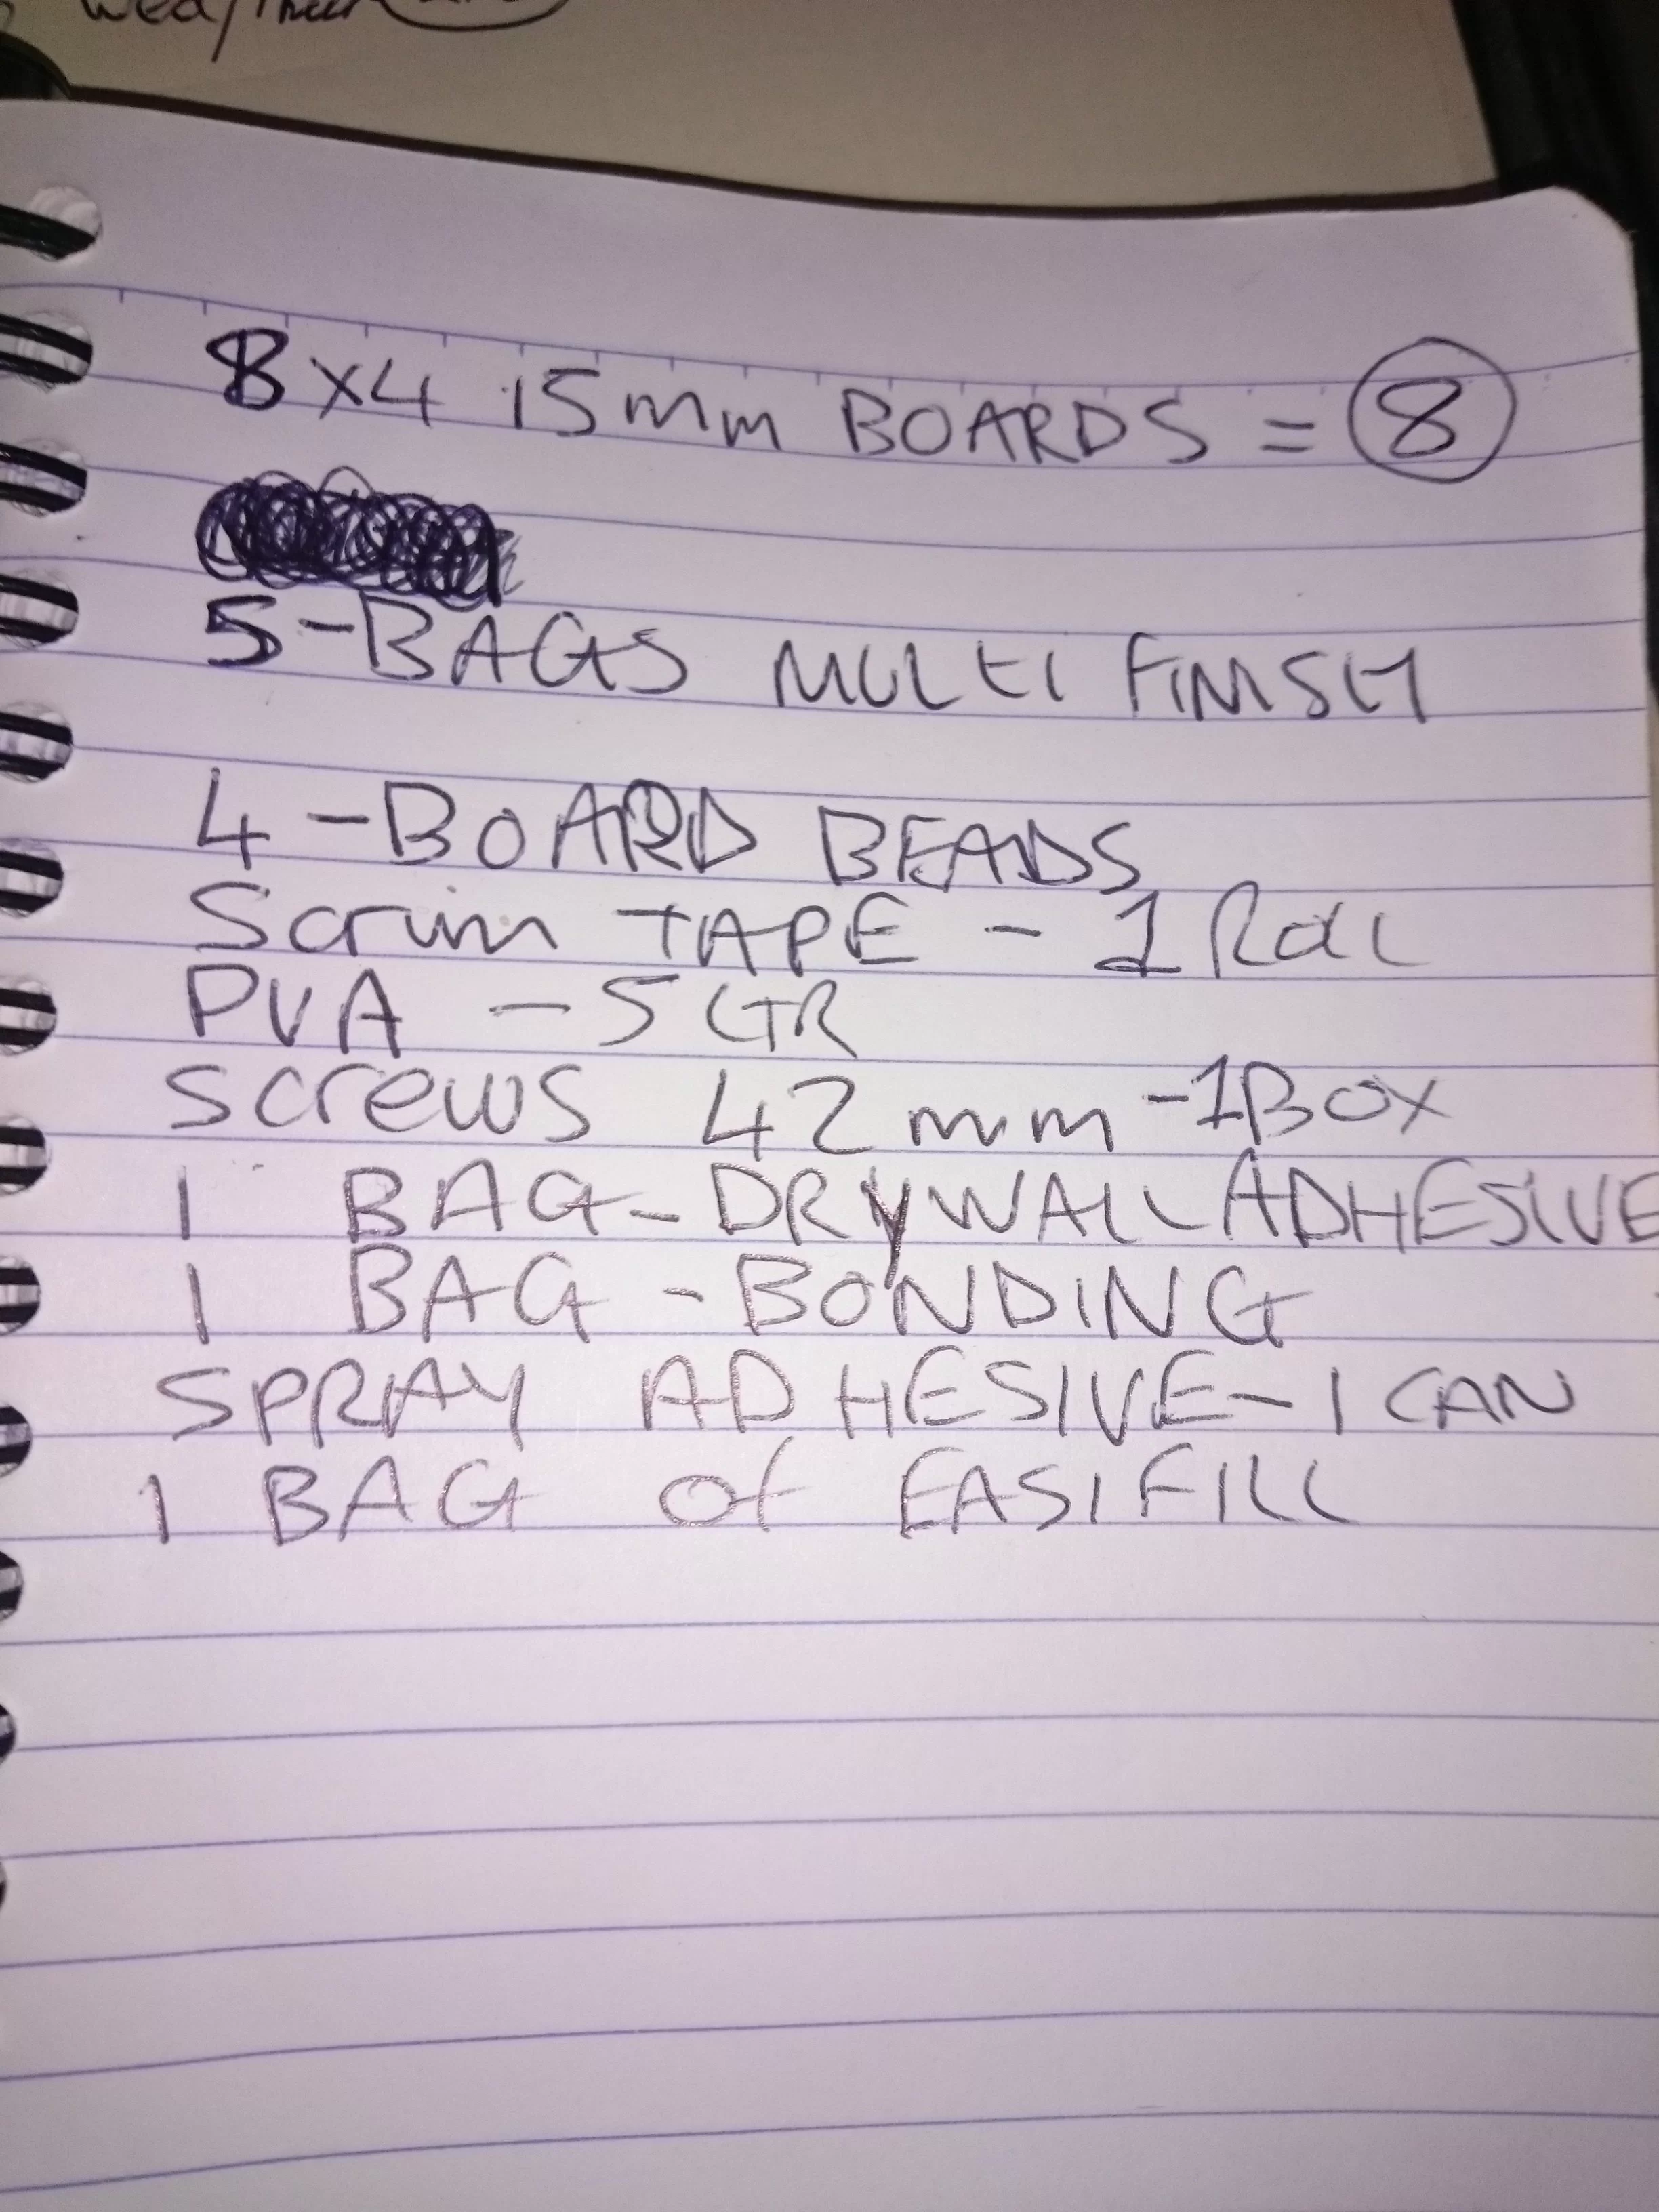 Wed/Thur
8x4 15mm BOARDS = 8
5-BAGS MULTI FINISH
4-BOARD BEADS
Scrim TAPE - 1 Roll
PVA - 5 LTR
Screws 42mm -1BOX
1 BAG-DRYWALL ADHESIVE
1 BAG -BONDING
SPRAY ADHESIVE-1 CAN
1 BAG of EASIFILL